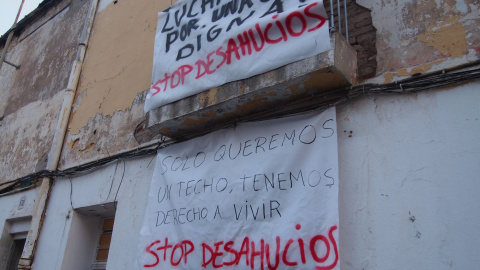 LUCHA
POR UNA
DIGNA!
STOP DESAHUCIOS
SOLO QUEREMOS
UN TECHO, TENEMOS
DERECHO A VIVIR
STOP DESAHUCIOS